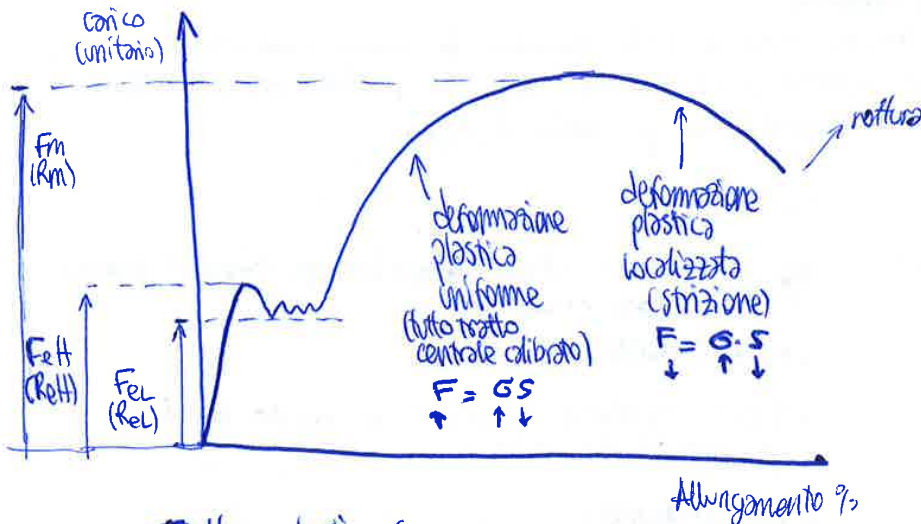 carico
(unitario)
Fm
(Rm)
FeH
(ReH)
FeL
(ReL)
deformazione
plastica
uniforme
(tutto tratto
centrale calibrato)
F = σS
↑ ↑ ↓
deformazione
plastica
localizzata
(strizione)
F = σ·S
↓ ↑ ↓
rottura
Allungamento %